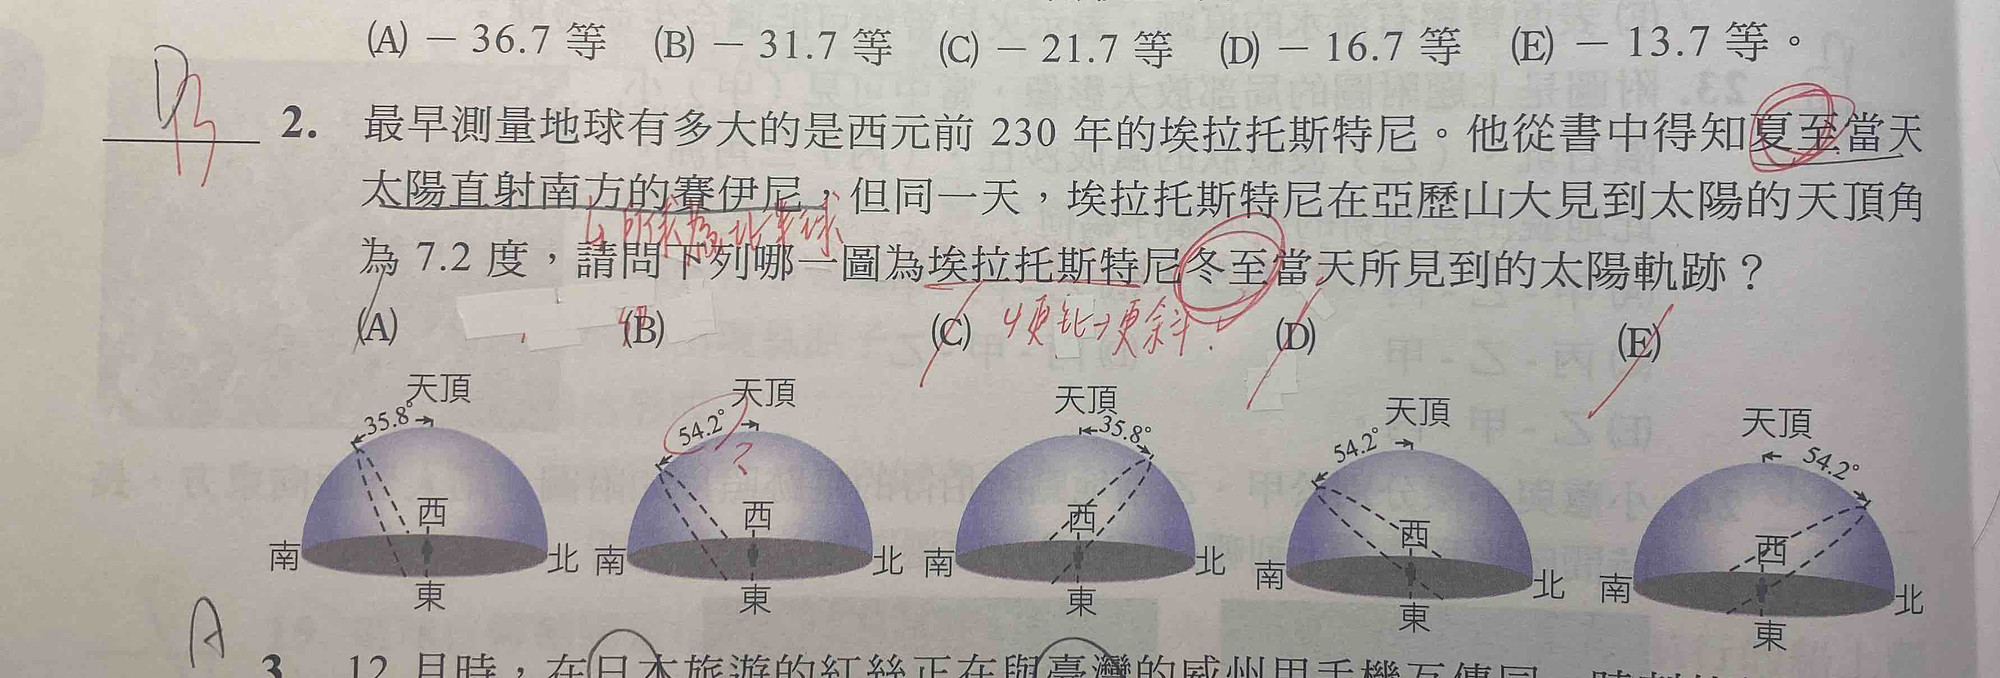 (A) － 36.7 等 (B) － 31.7 等 (C) － 21.7 等 (D) － 16.7 等 (E) － 13.7 等。
D
B
2. 最早測量地球有多大的是西元前 230 年的埃拉托斯特尼。他從書中得知夏至當天
太陽直射南方的賽伊尼，但同一天，埃拉托斯特尼在亞歷山大見到太陽的天頂角
為 7.2 度，請問下列哪一圖為埃拉托斯特尼冬至當天所見到的太陽軌跡？
(A) (B) (C) 更北→更斜! (D) (E)
天頂 天頂 天頂 天頂 天頂
35.8° 54.2° 35.8° 54.2° 54.2°
?
西 西 西 西 西
南 北 南 北 南 北 南 北 南 北
東 東 東 東 東
A
3. 12 月時，在日本旅遊的紅絲正在與臺灣的威州用手機互傳同